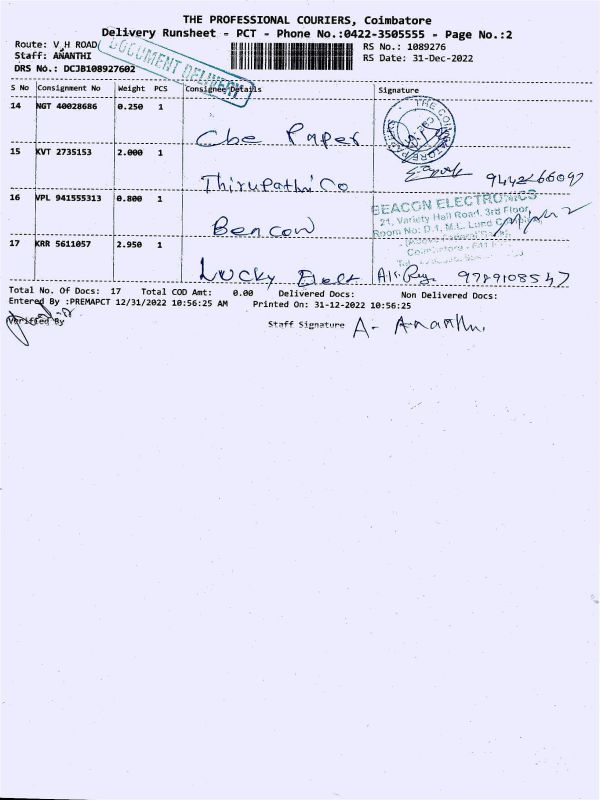 THE PROFESSIONAL COURIERS, Coimbatore
Delivery Runsheet - PCT - Phone No.:0422-3505555 - Page No.:2
Route: V H ROAD
RS No.: 1089276
Staff: ANANTHI
RS Date: 31-Dec-2022
DRS No.: DCJB108927602
DOCUMENT DELIVERY
S No Consignment No Weight PCS Consignee Details Signature
14 NGT 40028686 0.250 1
Cbe Paper
15 KVT 2735153 2.000 1
Thirupathi Co
16 VPL 941555313 0.800 1
Beacon
BEACON ELECTRONICS
21, Variety Hall Road, 3rd Floor,
Room No: D.1, M.L. Lund
17 KRR 5611057 2.950 1
Lucky 9789108547
Total No. Of Docs: 17 Total COD Amt: 0.00 Delivered Docs: Non Delivered Docs:
Entered By :PREMAPCT 12/31/2022 10:56:25 AM Printed On: 31-12-2022 10:56:25
Verified By
Staff Signature A. Ananthi